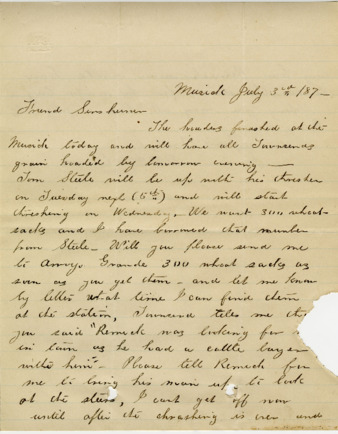 Musick July 3rd /87 —
Friend Sensheimer
The headers finished at the
Musick today and will have all Townsends
grain headed by tomorrow evening —
Tom Steele will be up with his thresher
on Tuesday next (5th) and will start
threshing on Wednesday. We want 300 wheat
sacks and I have borrowed that number
from Steele — Will you please send me
to Arroyo Grande 300 wheat sacks as
soon as you get them — and let me know
by letter what time I can find them
at the station, Townsend tells me
you said "Remick was looking for
in town as he had a cattle buyer
with him" — Please tell Remick for
me to bring his man up to look
at the steers, I cant get off now
until after the thrashing is over and